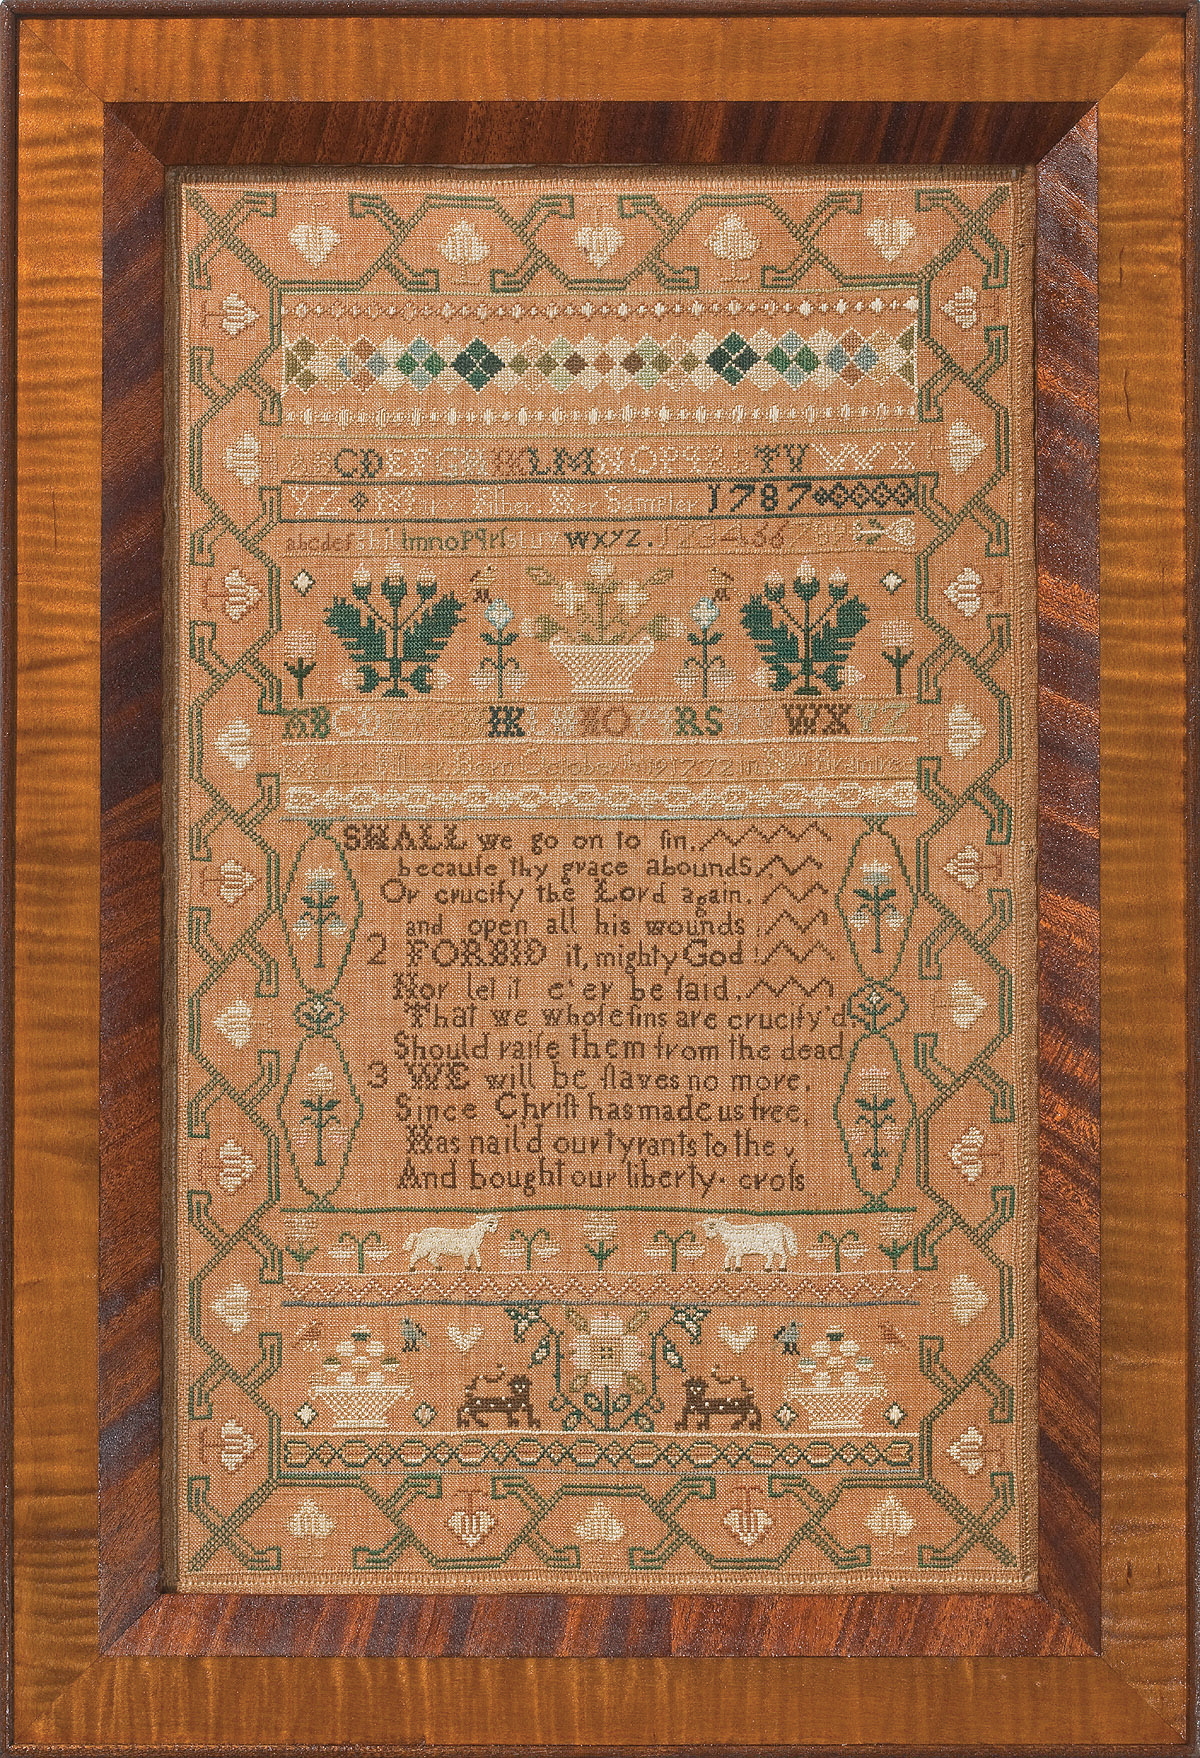 ABCDEFGHIKLMNOPQRSTVWX
YZ Her Sampler 1787
abcdefghiklmnopqrſstuvwxyz. 123456789
ABCDEFGHIKLMNOPQRSTVWXYZ
Born October 1772 in
SHALL we go on to ſin,
becauſe thy grace abounds,
Or crucify the Lord again,
and open all his wounds
2 FORBID it, mighty God !
Nor let it e'er be ſaid,
That we whoſe ſins are crucify'd,
Should raiſe them from the dead
3 WE will be ſlaves no more,
Since Chriſt has made us free,
Has nail'd our tyrants to the
And bought our liberty. croſs